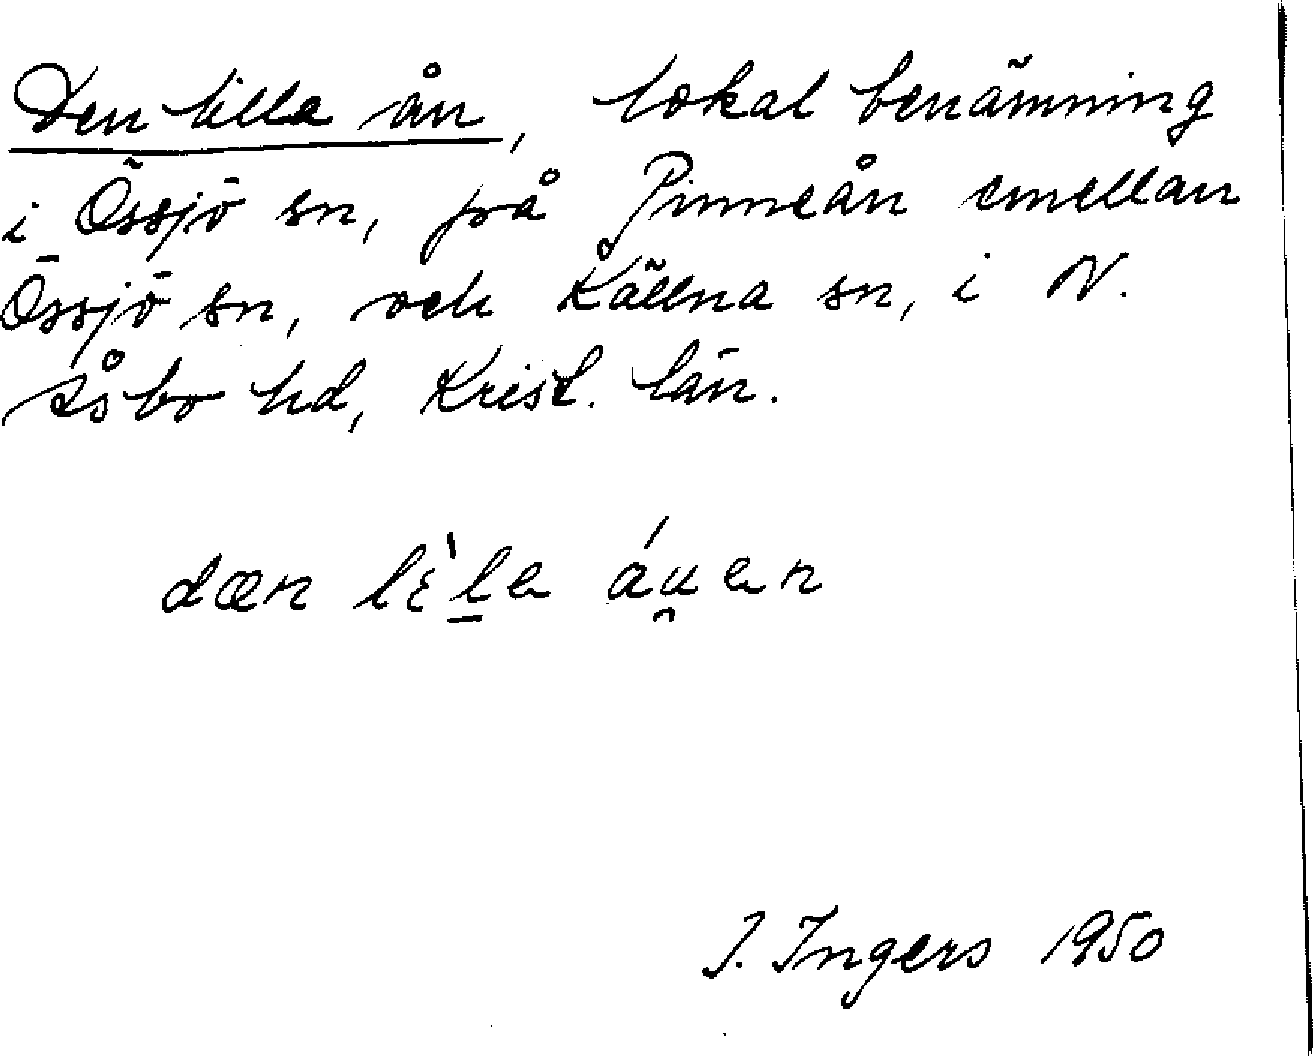 Den lilla ån, lokal benämning
i Össjö sn, på Pinneån emellan
Össjö sn, och Källna sn, i N.
Åsbo hd, Krist. län.
dæn lɛ̀la áu̯an
I. Ingers 1950